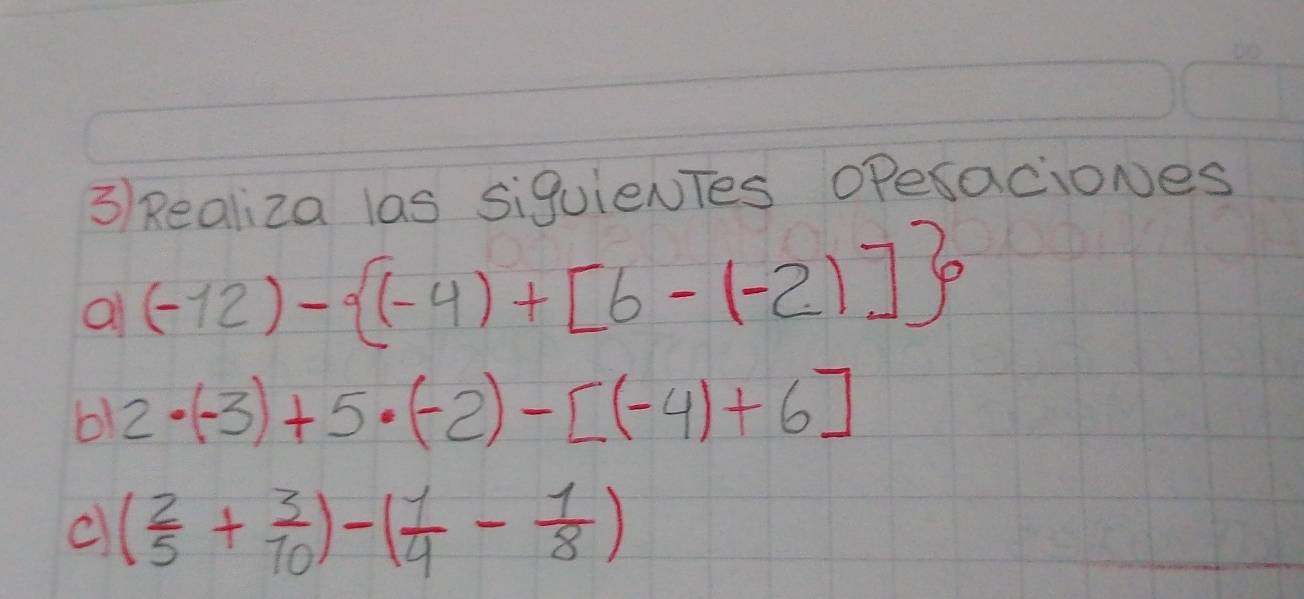 3) Realiza las siguientes operaciones
a) (-12) - {(-4) + [6 - (-2)]}
b) 2·(-3) + 5·(-2) - [(-4) + 6]
c) (2/5 + 3/10) - (1/4 - 1/8)